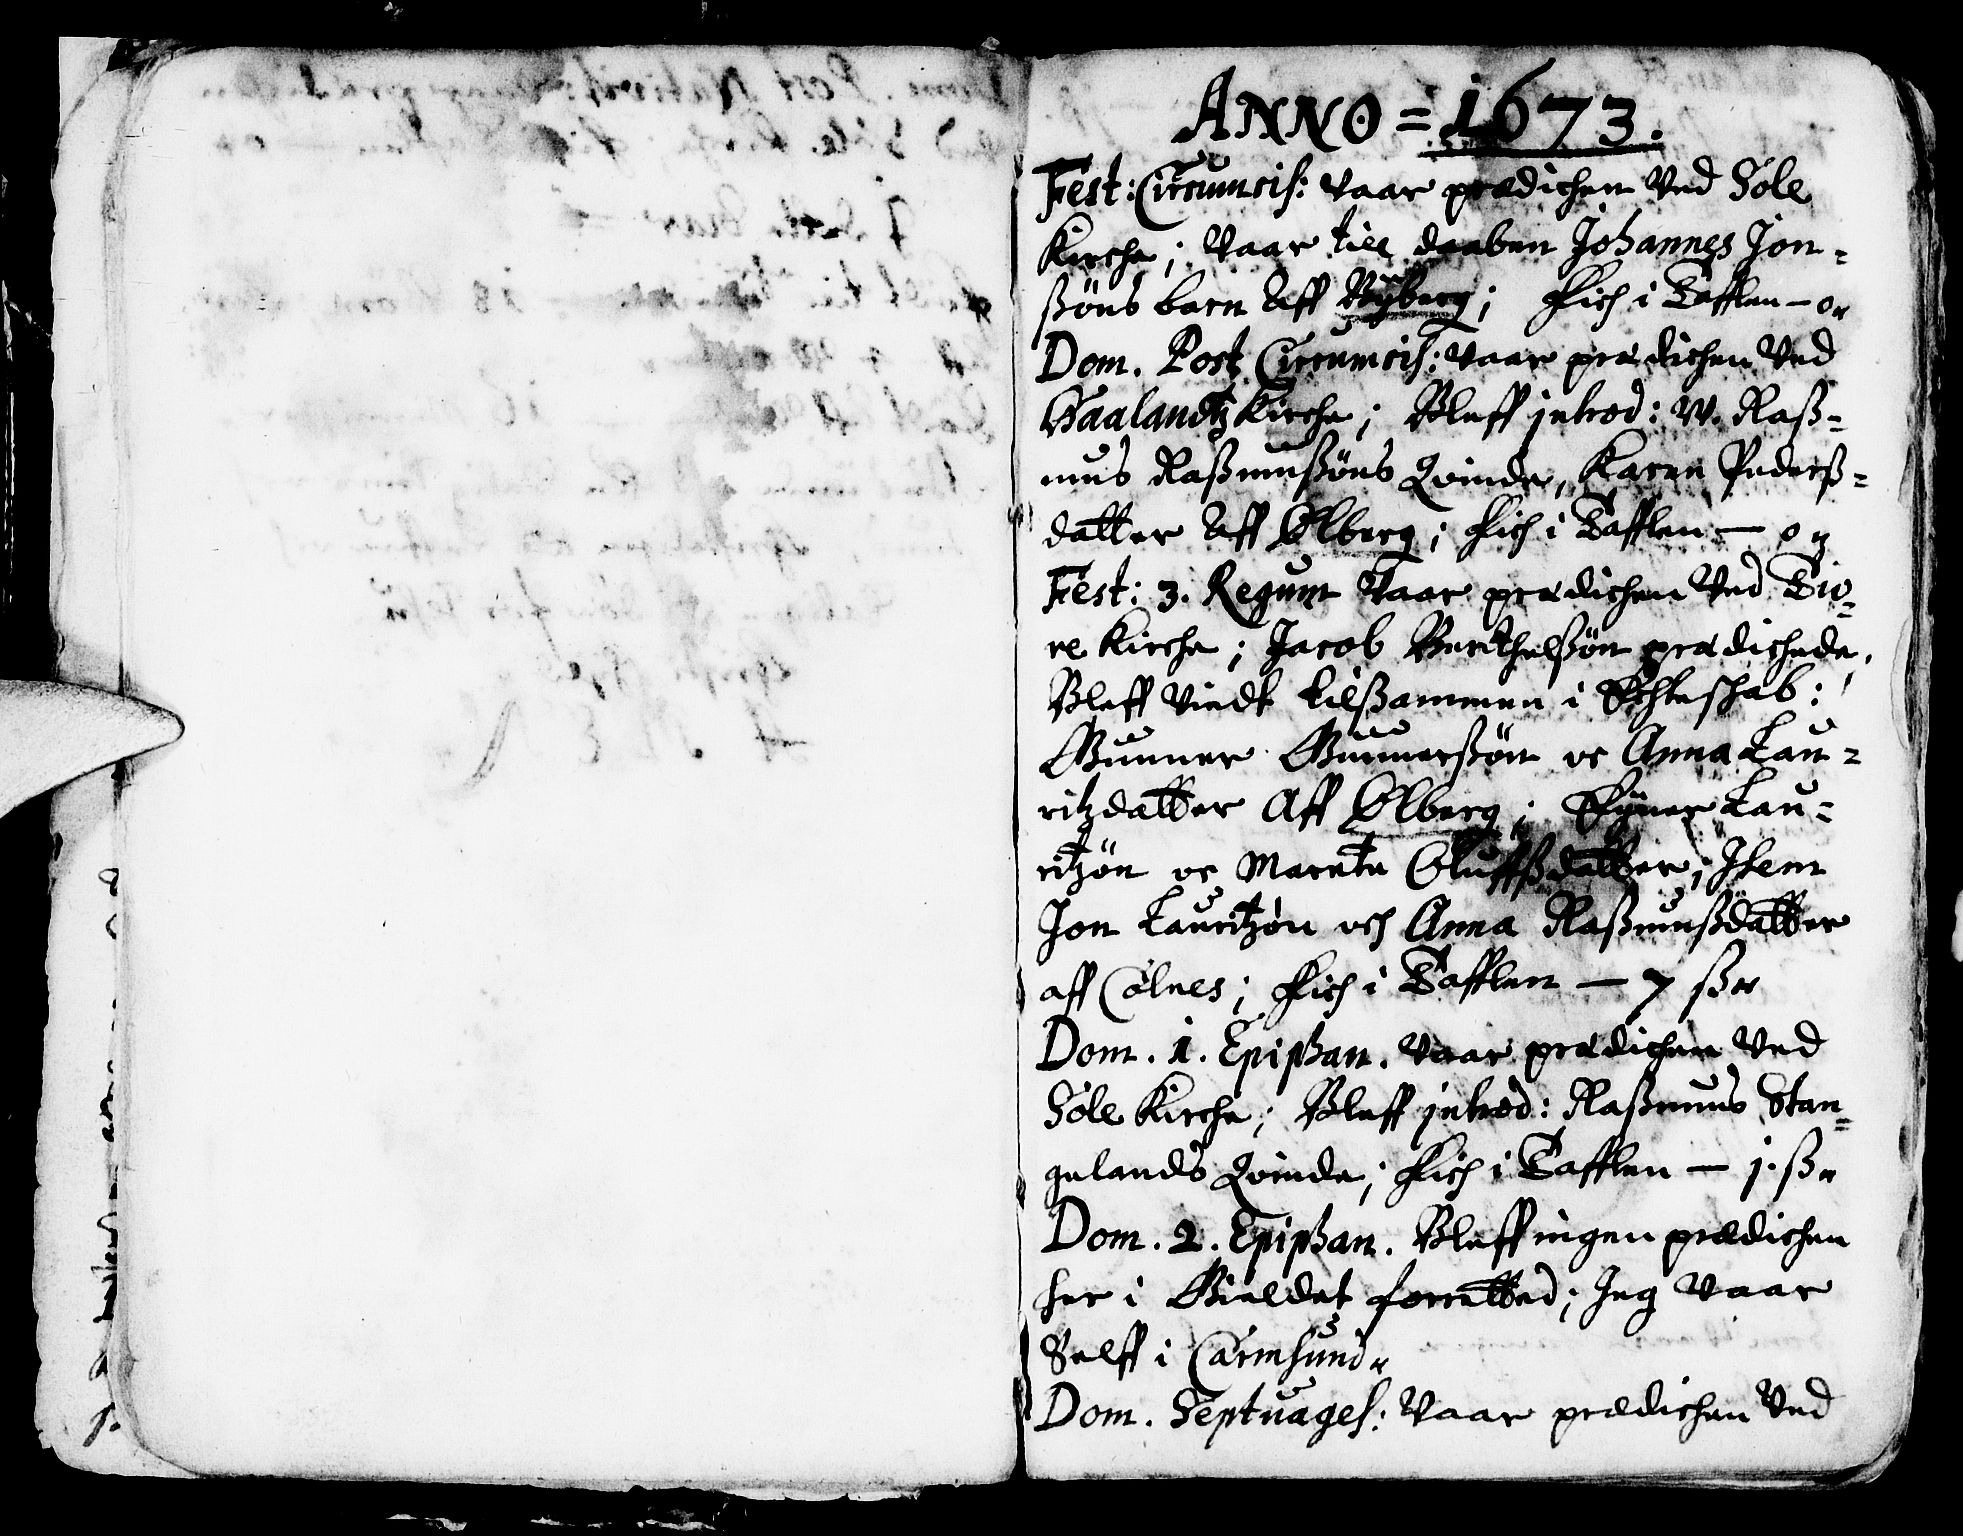 ANNO = 1673.
Fest: Circumcis: Vaar prædichen Ved Sole
Kirche; Vaar till daaben Johannes Jon-
ßöns barn Aff Ryberg; Fich i Tafflen — 0
Dom. Post Circumcis: Vaar prædichen Ved
Haalandtz Kirche; Bleff introd: W. Raß-
mus Raßmußöns Qvinde, Karen Pederß-
datter Aff Ølberg; Fich i Tafflen — 0
Fest: 3. Regum Vaar prædichen Ved Tio-
re Kirche; Jacob Berthelßön prædichede,
Bleff Viedt tilßammen i Echteschab:
Gunner Gunnerßön oc Anna Lau-
ritzdatter Aff Ølberg; Lau-
ritzön oc Marete Oluffßdatter; Item
Jon Lauritzön och Anna Raßmußdatter
aff Cølnes; Fich i Tafflen — 7 ß
Dom. 1. Epiphan. Vaar prædichen Ved
Sole Kirche; Bleff introd: Raßmus Stan-
gelands Qvinde; Fich i Tafflen — j. ß
Dom. 2. Epiphan. Bleff ingen prædichen
her i Gieldet forretted; Jeg Vaar
Selff i Carmsund
Dom. Septuages: Vaar prædichen Ved